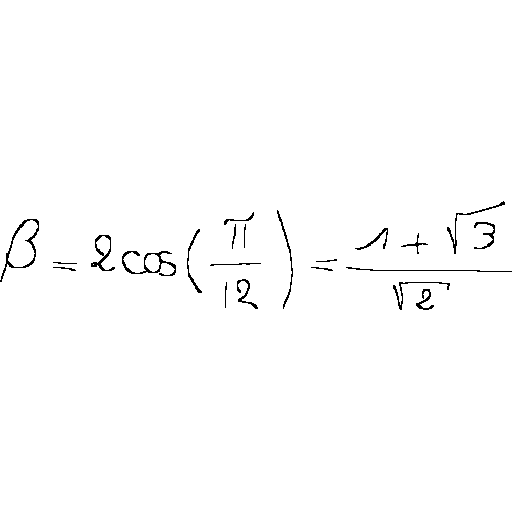 β = 2cos(π/12) = (1+√3)/√2